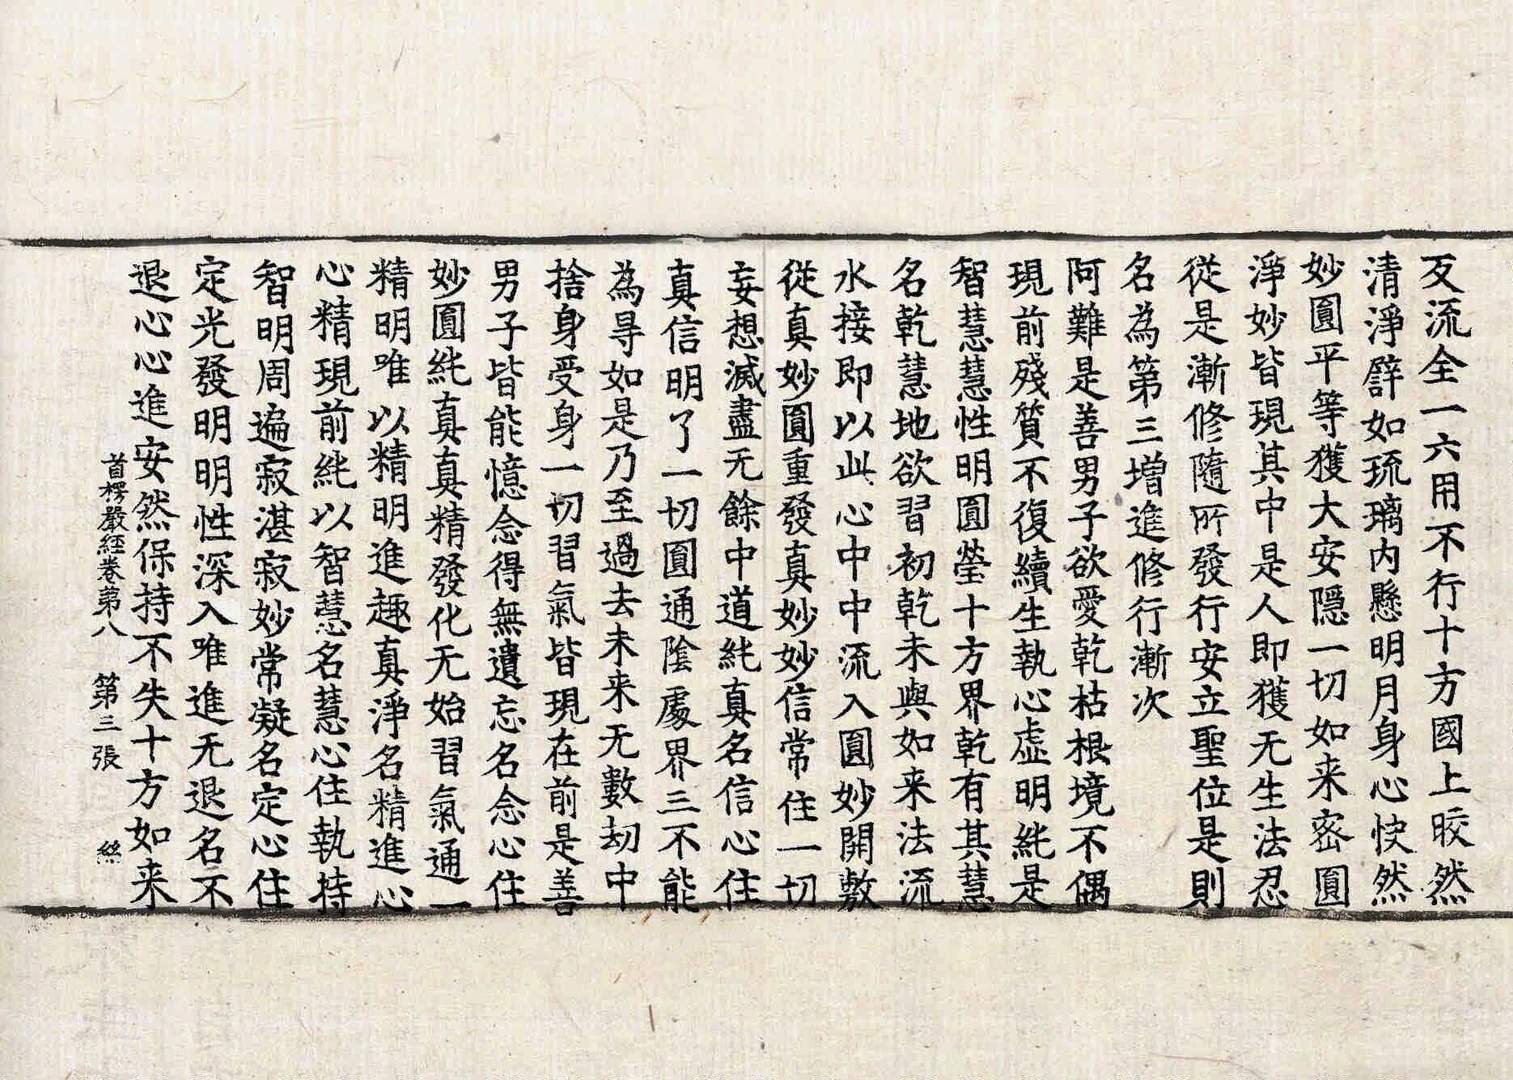 反流全一六用不行十方國土皎然
清淨譬如琉璃内懸明月身心快然
妙圓平等獲大安隱一切如来密圓
淨妙皆現其中是人即獲无生法忍
従是漸修隨所發行安立聖位是則
名為第三增進修行漸次
阿難是善男子欲愛乾枯根境不偶
現前殘質不復續生執心虛明純是
智慧慧性明圓瑩十方界乾有其慧
名乾慧地欲習初乾未與如来法流
水接即以此心中中流入圓妙開敷
從真妙圓重發真妙妙信常住一切
妄想滅盡无餘中道純真名信心住
真信明了一切圓通陰處界三不能
為㝵如是乃至過去未来无數劫中
捨身受身一切習氣皆現在前是善
男子皆能憶念得無遺忘名念心住
妙圓純真真精發化无始習氣通一
精明唯以精明進趣真淨名精進心
心精現前純以智慧名慧心住執持
智明周遍寂湛寂妙常凝名定心住
定光發明明性深入唯進无退名不
退心心進安然保持不失十方如来
首楞嚴經卷第八 第三張 絲